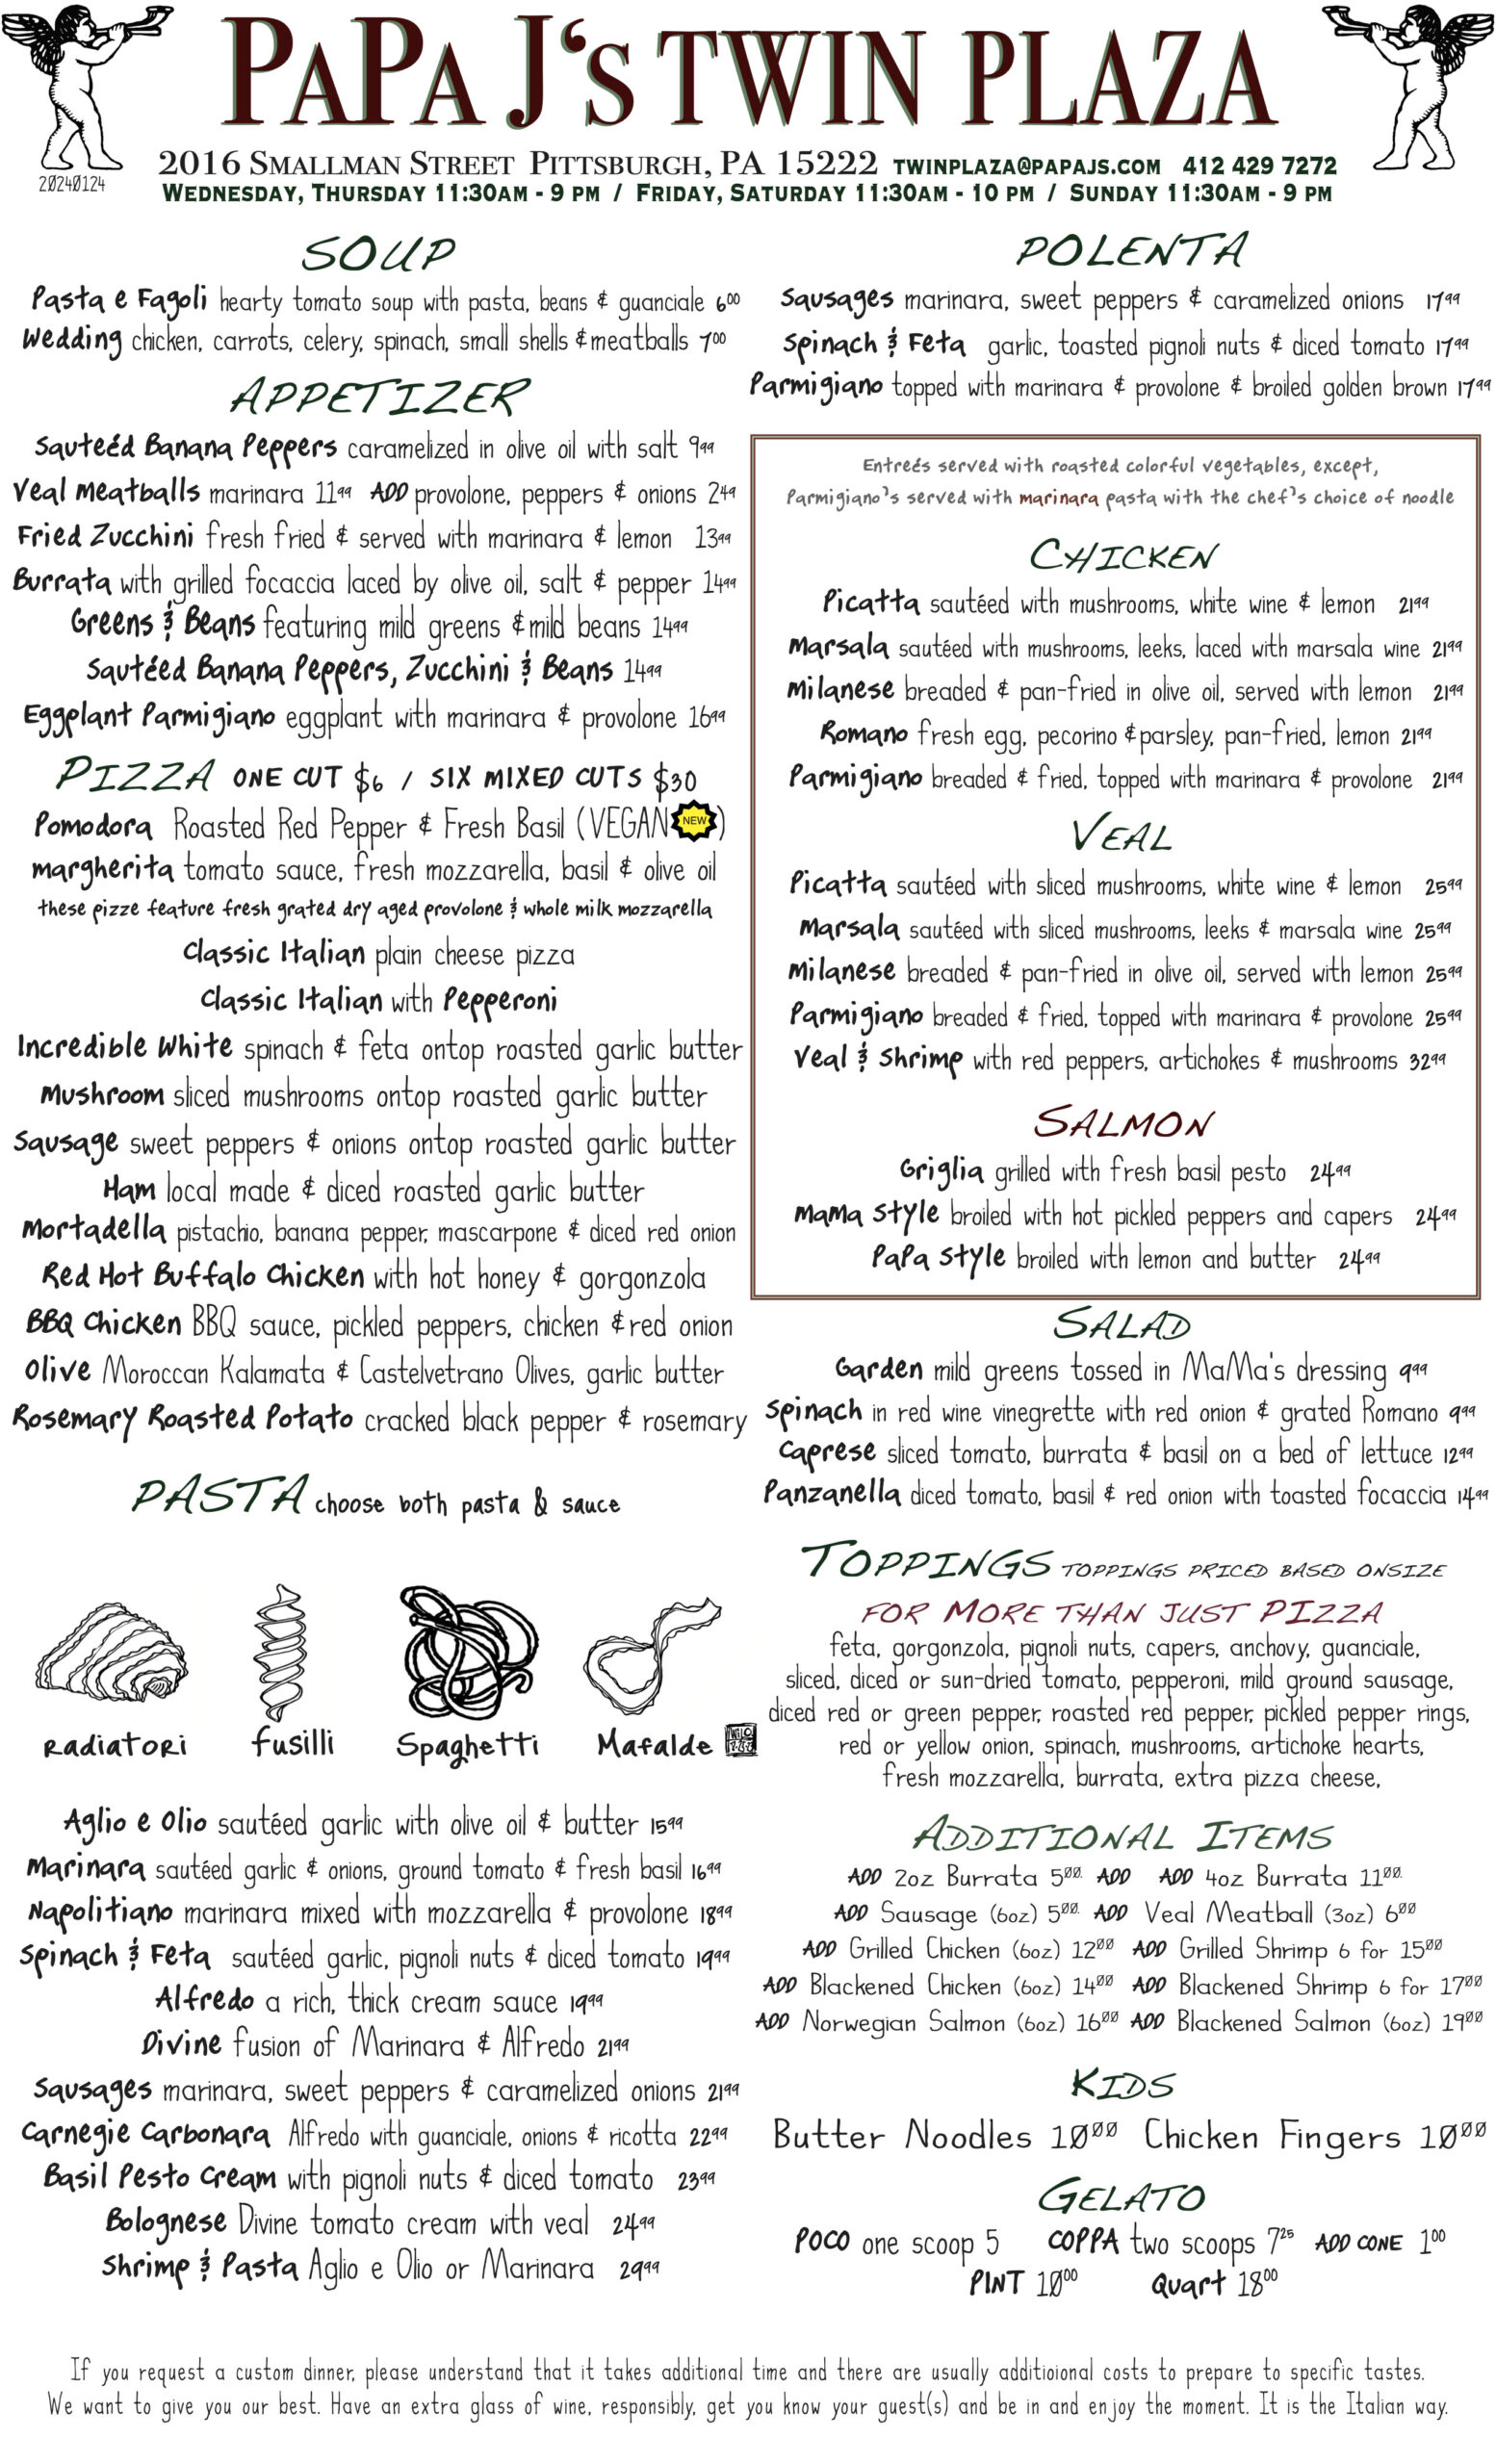 PaPa J's Twin Plaza
20240124
2016 Smallman Street Pittsburgh, PA 15222 twinplaza@papajs.com 412 429 7272
Wednesday, Thursday 11:30am - 9 pm / Friday, Saturday 11:30am - 10 pm / Sunday 11:30am - 9 pm
SOUP
Pasta e Fagoli hearty tomato soup with pasta, beans & guanciale 6⁰⁰
Wedding chicken, carrots, celery, spinach, small shells & meatballs 7⁰⁰
APPETIZER
Sauteéd Banana Peppers caramelized in olive oil with salt 9⁹⁹
Veal Meatballs marinara 11⁹⁹ ADD provolone, peppers & onions 2⁴⁹
Fried Zucchini fresh fried & served with marinara & lemon 13⁹⁹
Burrata with grilled focaccia laced by olive oil, salt & pepper 14⁹⁹
Greens & Beans featuring mild greens & mild beans 14⁹⁹
Sautéed Banana Peppers, Zucchini & Beans 14⁹⁹
Eggplant Parmigiano eggplant with marinara & provolone 16⁹⁹
PIZZA ONE CUT $6 / SIX MIXED CUTS $30
Pomodora Roasted Red Pepper & Fresh Basil (VEGAN NEW)
Margherita tomato sauce, fresh mozzarella, basil & olive oil
these pizze feature fresh grated dry aged provolone & whole milk mozzarella
Classic Italian plain cheese pizza
Classic Italian with Pepperoni
Incredible White spinach & feta ontop roasted garlic butter
Mushroom sliced mushrooms ontop roasted garlic butter
Sausage sweet peppers & onions ontop roasted garlic butter
Ham local made & diced roasted garlic butter
Mortadella pistachio, banana pepper, mascarpone & diced red onion
Red Hot Buffalo Chicken with hot honey & gorgonzola
BBQ Chicken BBQ sauce, pickled peppers, chicken & red onion
Olive Moroccan Kalamata & Castelvetrano Olives, garlic butter
Rosemary Roasted Potato cracked black pepper & rosemary
PASTA choose both pasta & sauce
Radiatori fusilli Spaghetti Mafalde
Aglio e Olio sautéed garlic with olive oil & butter 15⁹⁹
Marinara sautéed garlic & onions, ground tomato & fresh basil 16⁹⁹
Napolitiano marinara mixed with mozzarella & provolone 18⁹⁹
Spinach & Feta sautéed garlic, pignoli nuts & diced tomato 19⁹⁹
Alfredo a rich, thick cream sauce 19⁹⁹
Divine fusion of Marinara & Alfredo 21⁹⁹
Sausages marinara, sweet peppers & caramelized onions 21⁹⁹
Carnegie Carbonara Alfredo with guanciale, onions & ricotta 22⁹⁹
Basil Pesto Cream with pignoli nuts & diced tomato 23⁹⁹
Bolognese Divine tomato cream with veal 24⁹⁹
Shrimp & Pasta Aglio e Olio or Marinara 29⁹⁹
POLENTA
Sausages marinara, sweet peppers & caramelized onions 17⁹⁹
Spinach & Feta garlic, toasted pignoli nuts & diced tomato 17⁹⁹
Parmigiano topped with marinara & provolone & broiled golden brown 17⁹⁹
Entreés served with roasted colorful vegetables, except,
Parmigiano's served with marinara pasta with the chef's choice of noodle
CHICKEN
Picatta sautéed with mushrooms, white wine & lemon 21⁹⁹
Marsala sautéed with mushrooms, leeks, laced with marsala wine 21⁹⁹
Milanese breaded & pan-fried in olive oil, served with lemon 21⁹⁹
Romano fresh egg, pecorino & parsley, pan-fried, lemon 21⁹⁹
Parmigiano breaded & fried, topped with marinara & provolone 21⁹⁹
VEAL
Picatta sautéed with sliced mushrooms, white wine & lemon 25⁹⁹
Marsala sautéed with sliced mushrooms, leeks & marsala wine 25⁹⁹
Milanese breaded & pan-fried in olive oil, served with lemon 25⁹⁹
Parmigiano breaded & fried, topped with marinara & provolone 25⁹⁹
Veal & Shrimp with red peppers, artichokes & mushrooms 32⁹⁹
SALMON
Griglia grilled with fresh basil pesto 24⁹⁹
MaMa Style broiled with hot pickled peppers and capers 24⁹⁹
PaPa Style broiled with lemon and butter 24⁹⁹
SALAD
Garden mild greens tossed in MaMa's dressing 9⁹⁹
Spinach in red wine vinegrette with red onion & grated Romano 9⁹⁹
Caprese sliced tomato, burrata & basil on a bed of lettuce 12⁹⁹
Panzanella diced tomato, basil & red onion with toasted focaccia 14⁹⁹
TOPPINGS TOPPINGS PRICED BASED ONSIZE
FOR MORE THAN JUST PIZZA
feta, gorgonzola, pignoli nuts, capers, anchovy, guanciale,
sliced, diced or sun-dried tomato, pepperoni, mild ground sausage,
diced red or green pepper, roasted red pepper, pickled pepper rings,
red or yellow onion, spinach, mushrooms, artichoke hearts,
fresh mozzarella, burrata, extra pizza cheese,
ADDITIONAL ITEMS
ADD 2oz Burrata 5⁰⁰. ADD ADD 4oz Burrata 11⁰⁰.
ADD Sausage (6oz) 5⁰⁰. ADD Veal Meatball (3oz) 6⁰⁰
ADD Grilled Chicken (6oz) 12⁰⁰ ADD Grilled Shrimp 6 for 15⁰⁰
ADD Blackened Chicken (6oz) 14⁰⁰ ADD Blackened Shrimp 6 for 17⁰⁰
ADD Norwegian Salmon (6oz) 16⁰⁰ ADD Blackened Salmon (6oz) 19⁰⁰
KIDS
Butter Noodles 10⁰⁰ Chicken Fingers 10⁰⁰
GELATO
POCO one scoop 5 COPPA two scoops 7²⁵ ADD CONE 1⁰⁰
PINT 10⁰⁰ Quart 18⁰⁰
If you request a custom dinner, please understand that it takes additional time and there are usually additioional costs to prepare to specific tastes.
We want to give you our best. Have an extra glass of wine, responsibly, get you know your guest(s) and be in and enjoy the moment. It is the Italian way.